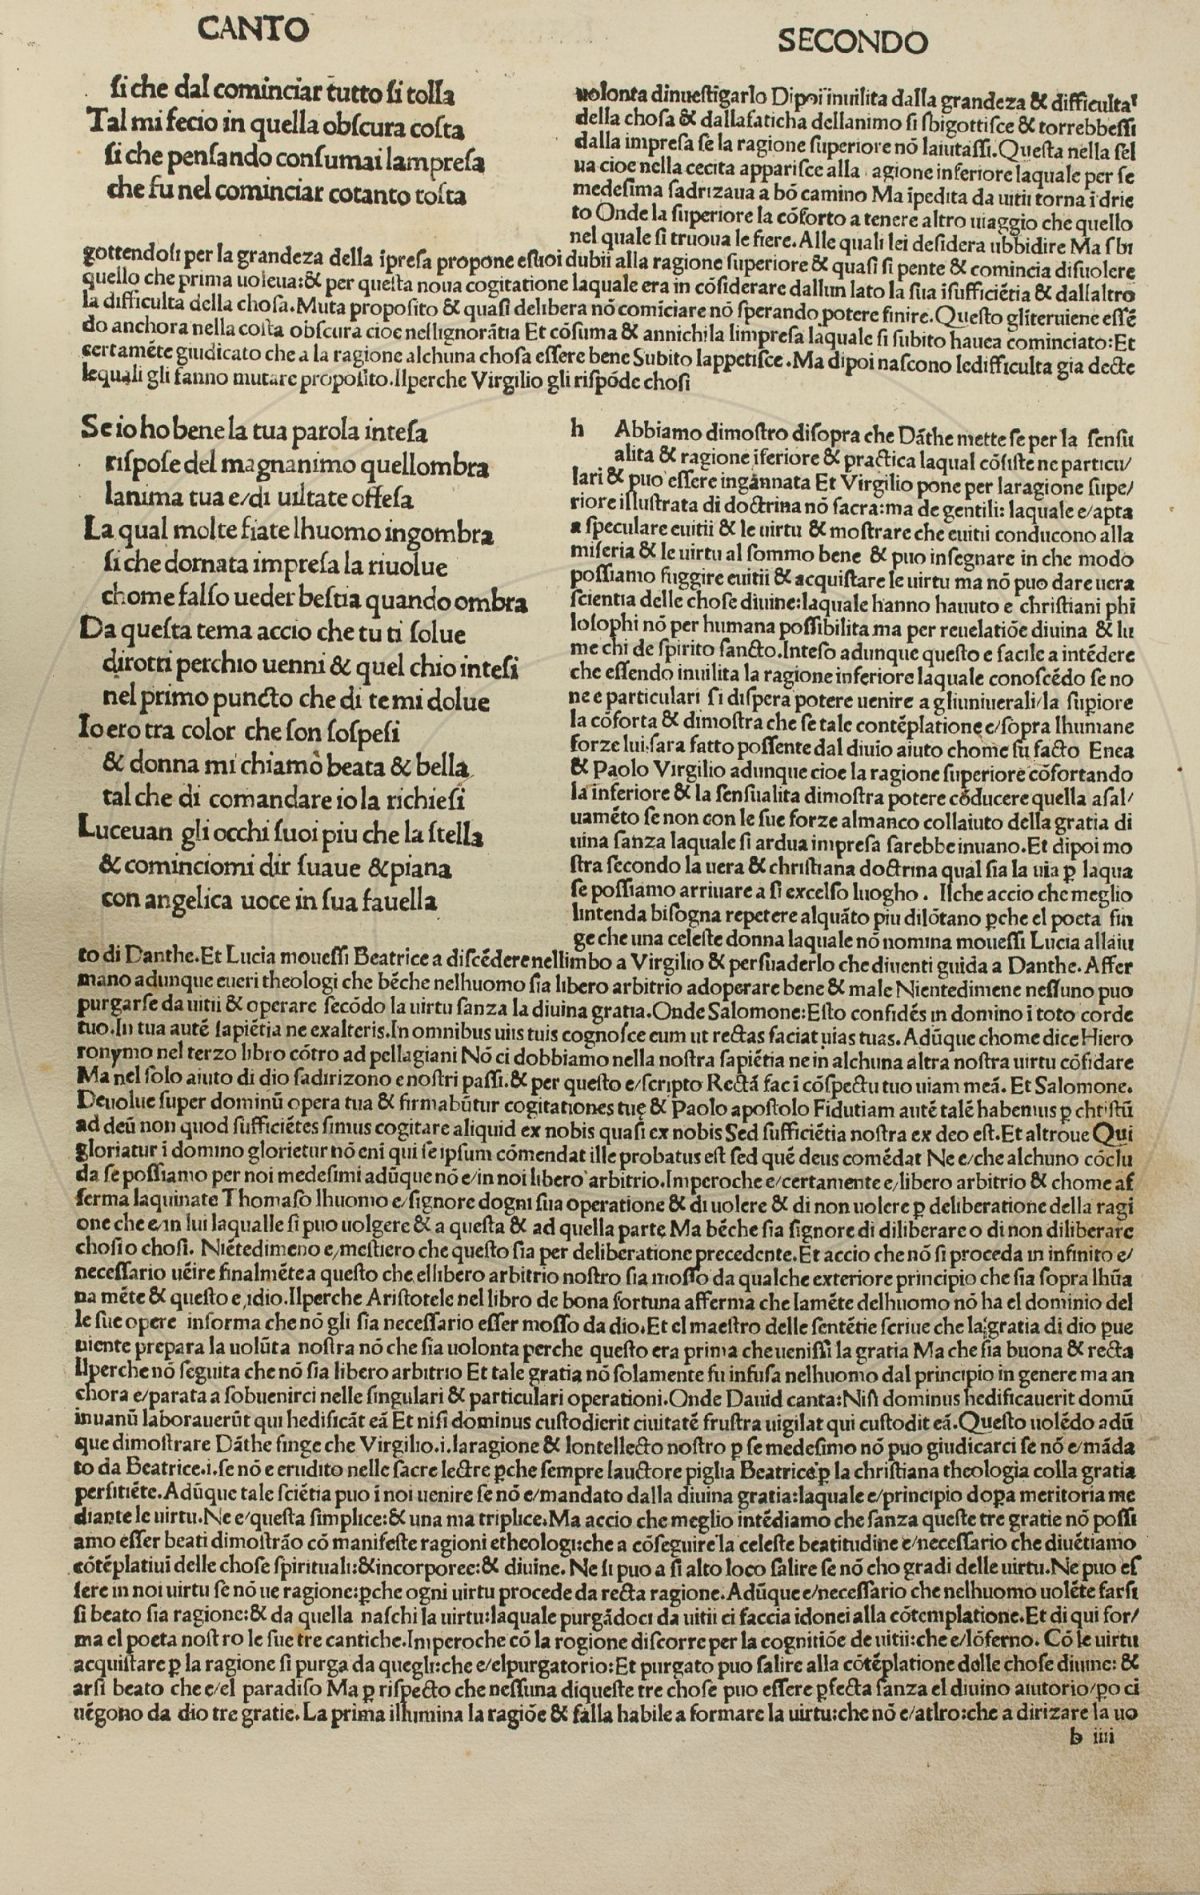 CANTO
SECONDO
ſi che dal cominciar tutto ſi tolla
Tal mi fecio in quella obſcura coſta
ſi che penſando conſumai lampreſa
che fu nel cominciar cotanto toſta
uolonta dinueſtigarlo Dipoi inuilita dalla grandeza & difficulta
della choſa & dallafaticha dellanimo ſi ſbigottiſce & torrebbeſſi
dalla impreſa ſe la ragione ſuperiore nõ laiutaſſi. Queſta nella ſel
ua cioe nella cecita appariſce alla agione inferiore laquale per ſe
medeſima ſadrizaua a bõ camino Ma ĩpedita da uitii torna ĩ drie
to Onde la ſuperiore la cõforto a tenere altro uiaggio che quello
nel quale ſi truoua le fiere. Alle quali lei deſidera ubbidire Ma ſbi
gottendoſi per la grandeza della ĩpreſa propone eſuoi dubii alla ragione ſuperiore & quaſi ſi pente & comincia diſuolere
quello che prima uoleua:& per queſta noua cogitatione laquale era in cõſiderare dallun lato la ſua ĩſufficiẽtia & dallaltro
la difficulta della choſa. Muta propoſito & quaſi delibera nõ comĩciare nõ ſperando potere finire. Queſto glĩteruiene eſſẽ
do anchora nella coſta obſcura cioe nellignorãtia Et cõſuma & annichila limpreſa laquale ſi ſubito hauea cominciato: Et
certamẽte giudicato che a la ragione alchuna choſa eſſere bene Subito lappetiſce. Ma dipoi naſcono ledifficulta gia decte
lequali gli fanno mutare propoſito. Ilperche Virgilio gli riſpõde choſi
Se io ho bene la tua parola inteſa
riſpoſe del magnanimo quellombra
lanima tua e/di uiltate offeſa
La qual molte fiate lhuomo ingombra
ſi che dornata impreſa la riuolue
chome falſo ueder beſtia quando ombra
Da queſta tema accio che tu ti ſolue
dirotti perchio uenni & quel chio inteſi
nel primo puncto che di te mi dolue
Io ero tra color che ſon ſoſpeſi
& donna mi chiamo beata & bella
tal che di comandare io la richieſi
Luceuan gli occhi ſuoi piu che la ſtella
& cominciomi dir ſuaue & piana
con angelica uoce in ſua fauella
h Abbiamo dimoſtro diſopra che Dãthe mette ſe per la ſenſu
alita & ragione ĩferiore & practica laqual cõſiſte ne particu/
lari & puo eſſere ingannata Et Virgilio pone per laragione ſupe/
riore illuſtrata di doctrina nõ ſacra:ma de gentili: laquale e/apta
a ſpeculare euitii & le uirtu & moſtrare che euitii conducono alla
miſeria & le uirtu al ſommo bene & puo inſegnare in che modo
poſſiamo fuggire euitii & acquiſtare le uirtu ma nõ puo dare uera
ſcientia delle choſe diuine:laquale hanno hauuto e chriſtiani phi
loſophi nõ per humana poſſibilita ma per reuelatiõe diuina & lu
me chi de ſpirito ſancto. Inteſo adunque queſto e facile a intẽdere
che eſſendo inuilita la ragione inferiore laquale conoſcẽdo ſe no
ne e particulari ſi diſpera potere uenire a gliuniuerali/la ſupiore
la cõforta & dimoſtra che ſe tale contẽplatione e/ſopra lhumane
forze lui ſara fatto poſſente dal diuio aiuto chome fu facto Enea
& Paolo Virgilio adunque cioe la ragione ſuperiore cõfortando
la inferiore & la ſenſualita dimoſtra potere cõducere quella aſal/
uamẽto ſe non con le ſue forze almanco collaiuto della gratia di
uina ſanza laquale ſi ardua impreſa ſarebbe inuano. Et dipoi mo
ſtra ſecondo la uera & chriſtiana doctrina qual ſia la uia ꝑ laqua
ſe poſſiamo arriuare a ſi excelſo luogho. Ilche accio che meglio
lintenda biſogna repetere alquãto piu dilõtano ꝑche el poeta fin
ge che una celeſte donna laquale nõ nomina moueſſi Lucia allaiu
to di Danthe. Et Lucia moueſſi Beatrice a diſcẽdere nellimbo a Virgilio & perſuaderlo che diuenti guida a Danthe. Affer
mano adunque eueri theologi che bẽche nelhuomo ſia libero arbitrio adoperare bene & male Nientedimene neſſuno puo
purgarſe da uitii & operare ſecõdo la uirtu ſanza la diuina gratia. Onde Salomone: Eſto confidẽs in domino ĩ toto corde
tuo. In tua autẽ ſapiẽtia ne exalteris. In omnibus uiis tuis cognoſce eum ut rectas faciat uias tuas. Adũque chome dice Hiero
ronymo nel terzo libro cõtro ad pellagiani Nõ ci dobbiamo nella noſtra ſapiẽtia ne in alchuna altra noſtra uirtu cõfidare
Ma nel ſolo aiuto di dio ſadirizono e noſtri paſſi. & per queſto e/ſcripto Rectã fac ĩ cõſpectu tuo uiam meã. Et Salomone.
Deuolue ſuper dominũ opera tua & firmabũtur cogitationes tuę & Paolo apoſtolo Fidutiam autẽ talẽ habemus ꝑ chriſtũ
ad deũ non quod ſufficiẽtes ſimus cogitare aliquid ex nobis quaſi ex nobis Sed ſufficiẽtia noſtra ex deo eſt. Et altroue Qui
gloriatur ĩ domino glorietur nõ enĩ qui ſe ipſum cõmendat ille probatus eſt ſed quẽ deus comẽdat Ne e/che alchuno cõclu
da ſe poſſiamo per noi medeſimi adũque nõ e/in noi libero arbitrio. Imperoche e/certamente e/libero arbitrio & chome af
ferma laquinate Thomaſo lhuomo e/ſignore dogni ſua operatione & di uolere & di non uolere ꝑ deliberatione della ragi
one che e/in lui laqualle ſi puo uolgere & a queſta & ad quella parte Ma bẽche ſia ſignore di diliberare o di non diliberare
choſi o choſi. Niẽtedimeno e/meſtiero che queſto ſia per deliberatione precedente. Et accio che nõ ſi proceda in infinito e/
neceſſario uẽire finalmẽte a queſto che ellibero arbitrio noſtro ſia moſſo da qualche exteriore principio che ſia ſopra lhũa
na mẽte & queſto e,idio. Ilperche Ariſtotele nel libro de bona fortuna afferma che lamẽte delhuomo nõ ha el dominio del
le ſue opere informa che nõ gli ſia neceſſario eſſer moſſo da dio. Et el maeſtro delle ſentẽtie ſcriue che la gratia di dio ꝑue
niente prepara la uolũta noſtra nõ che ſia uolonta perche queſto era prima che ueniſſi la gratia Ma che ſia buona & recta
Ilperche nõ ſeguita che nõ ſia libero arbitrio Et tale gratia nõ ſolamente fu infuſa nelhuomo dal principio in genere ma an
chora e/parata a ſobuenirci nelle ſingulari & particulari operationi. Onde Dauid canta: Niſi dominus hedificauerit domũ
inuanũ laborauerũt qui hedificãt eã Et niſi dominus cuſtodierit ciuitatẽ fruſtra uigilat qui cuſtodit eã. Queſto uolẽdo adũ
que dimoſtrare Dãthe finge che Virgilio.i.laragione & lontellecto noſtro ꝑ ſe medeſimo nõ puo giudicarci ſe nõ e/mãda
to da Beatrice.i.ſe nõ e erudito nelle ſacre lectre ꝑche ſempre lauctore piglia Beatrice ꝑ la chriſtiana theologia colla gratia
perfitiẽte. Adũque tale ſciẽtia puo ĩ noi uenire ſe nõ e/mandato dalla diuina gratia:laquale e/principio dopa meritoria me
diante le uirtu. Ne e/queſta ſimplice:& una ma triplice. Ma accio che meglio intẽdiamo che ſanza queſte tre gratie nõ poſſi
amo eſſer beati dimoſtrão cõ manifeſte ragioni etheologi:che a cõſeguire la celeſte beatitudine e/neceſſario che diuẽtiamo
cõtẽplatiui delle choſe ſpirituali:&incorporee:& diuine. Ne ſi puo a ſi alto loco ſalire ſe nõ cho gradi delle uirtu. Ne puo eſ
ſere in noi uirtu ſe nõ ue ragione:ꝑche ogni uirtu procede da recta ragione. Adũque e/neceſſario che nelhuomo uolẽte farſi
ſi beato ſia ragione:& da quella naſchi la uirtu:laquale purgãdoci da uitii ci faccia idonei alla cõtemplatione. Et di qui for/
ma el poeta noſtro le ſue tre cantiche. Imperoche cõ la rogione diſcorre per la cognitiõe de uitii:che e/lõferno. Cõ le uirtu
acquiſtare ꝑ la ragione ſi purga da quegli:che e/elpurgatorio: Et purgato puo ſalire alla cõtẽplatione dolle choſe diuine: &
arſi beato che e/el paradiſo Ma ꝑ riſpecto che neſſuna diqueſte tre choſe puo eſſere ꝑfecta ſanza el diuino aiutorio/ꝑo ci
uẽgono da dio tre gratie. La prima illumina la ragiõe & falla habile a formare la uirtu:che nõ e/atlro:che a dirizare la uo
b iiii